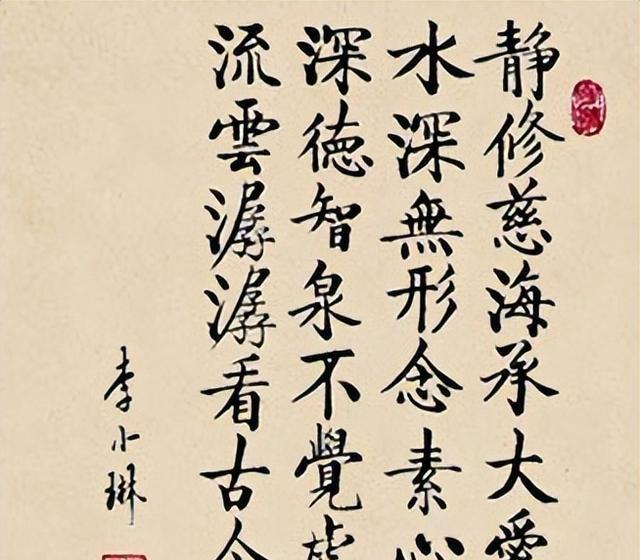 静修慈海承大愛
水深無形念素心
深徳智泉不覺
流雲潺潺看古今
李小琳